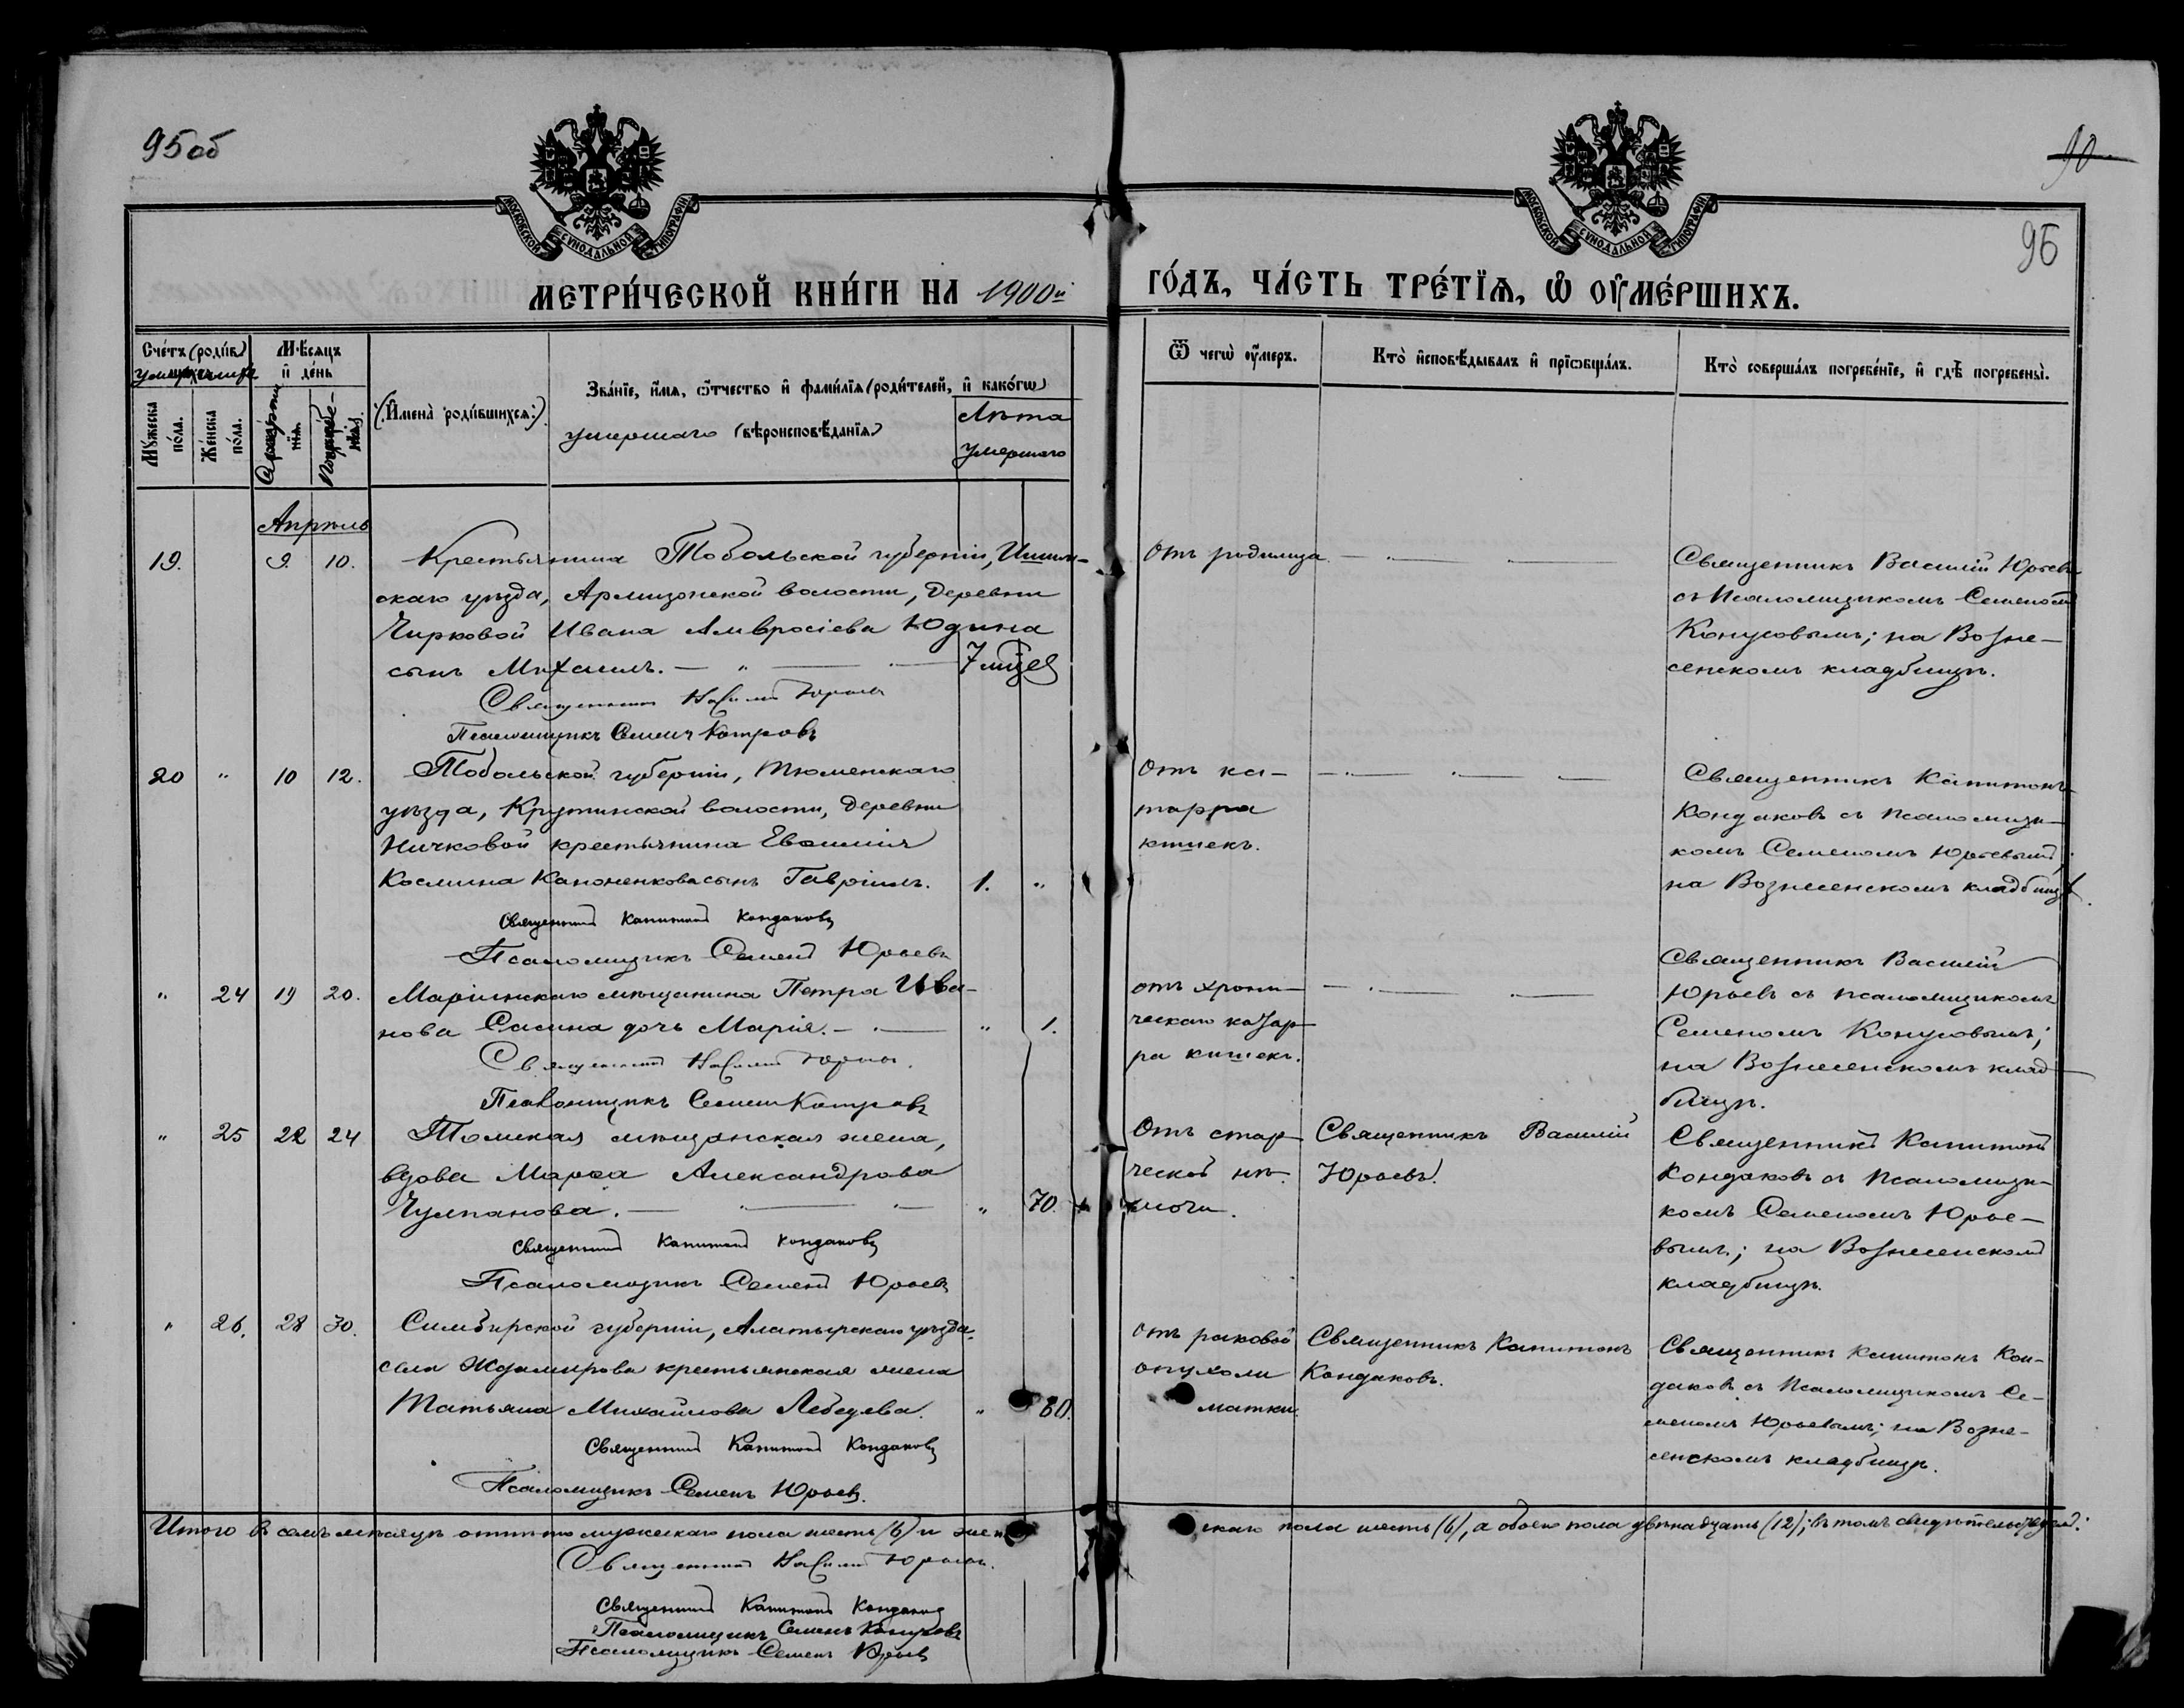 95об
90
96
МОСКОВСКОЙ СѴНОДАЛЬНОЙ ТИПОГРАФІИ
МОСКОВСКОЙ СѴНОДАЛЬНОЙ ТИПОГРАФІИ
МЕТРИ́ЧЕСКОЙ КНИ́ГИ НА 1900й
ГО́ДЪ, ЧА́СТЬ ТРЕ́ТЇѦ, Ѡ ОУМЕ́РШИХЪ.
Сче́тъ (роди́в)
умершихъ
Му́жеска по́ла.
Же́нска по́ла.
Мѣсяцъ и де́нь
Смерти
Погребенія
(Имена̀ роди́вшихся:)
Зва́нїе, и́мя, ѻ́тчество и фами́лїя (роди́телей, и како́гѡ
умершаго (вѣроисповѣ́данїя)
Лѣта
умершаго
Ѿ чегѡ̀ оу́меръ.
Кто̀ исповѣ́дывалъ и прїѡбща́лъ.
Кто̀ соверша́лъ погребе́нїе, и гдѣ̀ погребены̀.
Апрѣль
19. 9. 10.
Крестьянина Тобольской губерніи, Ишим-
скаго уѣзда, Армизонской волости, деревни
Чирковой Ивана Амвросіева Юдина
сынъ Михаилъ. — " — 7 мѣс
Священникъ Василій Юрьевъ
Псаломщикъ Семенъ
Отъ родимца
Священникъ Василій Юрьевъ
съ Псаломщикомъ Семеномъ
Конусовымъ; на Возне-
сенскомъ кладбищѣ.
20 " 10 12.
Тобольской губерніи, Тюменскаго
уѣзда, Крутинской волости, деревни
Ничковой крестьянина Евѳимія
Космина Каноненкова сынъ Гавріилъ. 1. "
Священникъ Капитонъ Кондаковъ
Псаломщикъ Семенъ Юрьевъ
Отъ ка-
тарра
кишекъ.
Священникъ Капитонъ
Кондаковъ съ псаломщи-
комъ Семеномъ Юрьевымъ;
на Вознесенскомъ кладбищѣ.
" 24 19 20.
Маріинскаго мѣщанина Петра Ива-
нова Сасина дочь Марія. — " 1.
Священникъ Василій Юрьевъ.
Псаломщикъ Семенъ
отъ хрони-
ческаго катар-
ра кишекъ.
Священникъ Василій
Юрьевъ съ псаломщикомъ
Семеномъ Конусовымъ;
на Вознесенскомъ клад-
бищѣ.
" 25 22 24
Томская мѣщанская жена,
вдова Марѳа Александрова
Чулпанова. — " — " 70.
Священникъ Капитонъ Кондаковъ
Псаломщикъ Семенъ Юрьевъ
Отъ стар-
ческой не-
мочи.
Священникъ Василій
Юрьевъ.
Священникъ Капитонъ
Кондаковъ съ псаломщи-
комъ Семеномъ Юрье-
вымъ; на Вознесенскомъ
кладбищѣ.
" 26. 28 30.
Симбирской губерніи, Алатырскаго уѣзда,
села Ждамирова крестьянская жена
Татьяна Михайлова Лебедева. " 80.
Священникъ Капитонъ Кондаковъ
Псаломщикъ Семенъ Юрьевъ.
отъ раковой
опухоли
матки.
Священникъ Капитонъ
Кондаковъ.
Священникъ Капитонъ Кон-
даковъ съ Псаломщикомъ Се-
меномъ Юрьевымъ; на Возне-
сенскомъ кладбищѣ.
Итого въ семъ мѣсяцѣ отпѣто мужескаго пола шесть (6) и жен
скаго пола шесть (6), а обоего пола двѣнадцать (12); въ томъ свидѣтельствуемъ:
Священникъ Василій Юрьевъ.
Священникъ Капитонъ Кондаковъ
Псаломщикъ Семенъ Конусовъ
Псаломщикъ Семенъ Юрьевъ